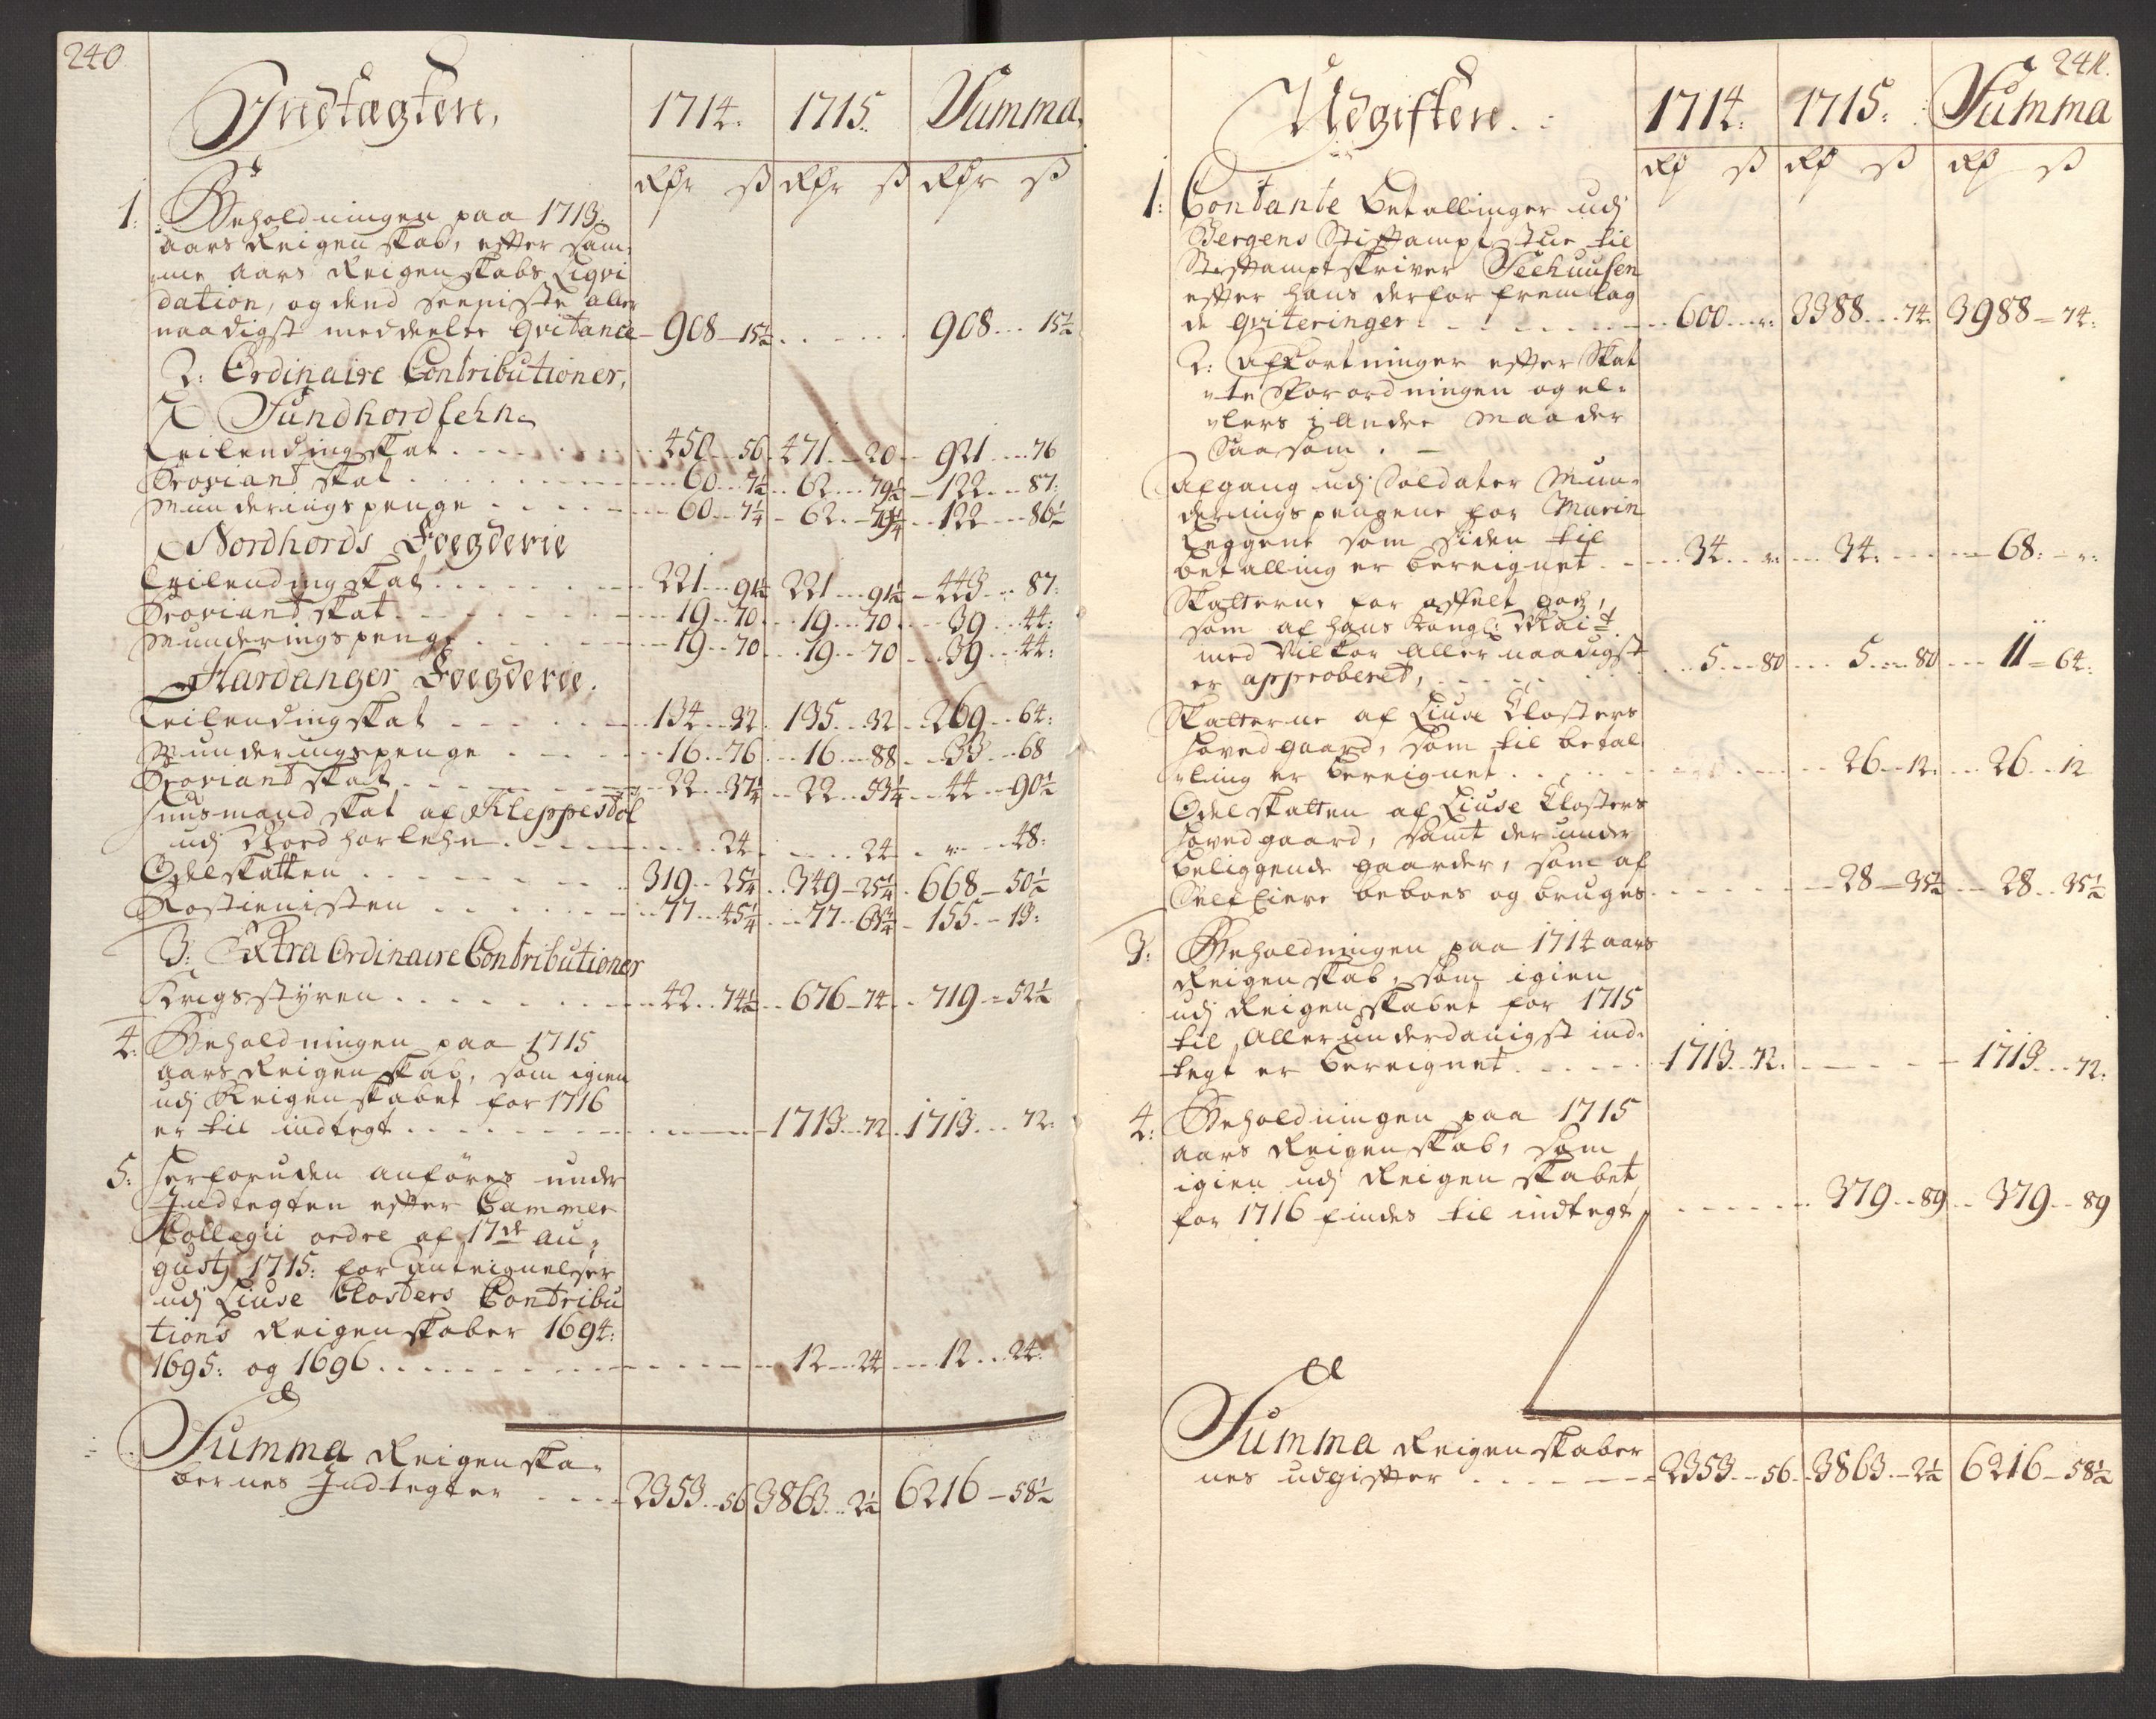 240
Indtægten, 1714. 1715. Summa,
Rdr ß Rdr ß Rdr ß
1. Beholdningen paa 1713:
aars Reigenskab, efter sam¬
me aars Reigenskabs Liqvi
dation, og dend seeniste aller
naadigst meddeelte Qvitance 908 15½ 908 15½
2: Ordinaire Contributioner,
Sundhordlehn
Leilendingskat 450 56 471 20 921 76
Proviant skat 60 7½ 62 79½ 122 87:
Munderingspenge 60 7¼ 62 79¼ 122 86½
Nordhords Foegderie
Leilendingskat 221 91½ 221 91½ 443 87:
Proviant skat 19 70 19 70 39 44:
Munderingspenge 19 70 19 70 39 44:
Hardanger Foegderie.
Leilendingskat 134 32 135 32 269 64:
Munderingspenge 16 76 16 88 33 68
Proviant skat 22 37¼ 22 53¼ 44 90½
Huusmand skat af Kleppesdól
udj Nordhorlehn 24 24 48:
Odelskatten 319 25¼ 349 25¼ 668 50½
Rostienisten 77 45¼ 77 63¾ 155 13:
3: Extra Ordinaire Contributioner
Krigsstyren 42 74½ 676 74 719 52½
4: Beholdningen paa 1715
aars Reigenskab, som igien
udj Reigenskabet for 1716
er til indtegt 1713 72 1713 72:
5: Herforuden anföres under
Indtegten efter Cammer
Collegii ordre af 17de Au¬
gustj 1715: for Antegnelser
udj Liuse Closters Contribu
tions Reigenskaber 1694:
1695: og 1696 12 24 12 24:
Summa Reigenska¬
bernes Indtegter 2353 56 3863 2½ 6216 58½
241.
Udgiften. 1714: 1715: Summa
Rd ß Rd ß Rd ß
1: Contante Betallinger udj
Bergens Stiftamptstue til
Stiftamptskriver Seehuusen
efter hans derfor fremlag
de Qviteringer 600 3388 74 3988 74:
2: Afkortninger efter Skat
te Forordningen og el¬
lers i Andre Maader
Saasom.
Afgang udj Soldater Mun¬
deringspengene for Marin
Leggene som siden til
betalling er bereignet 34 34: 68:
Skatterne for
som af Hans Kongl: Mait
med Vilkor Allernaadigst
er approberet, 5 80 5 80 11 64:
Skatterne af Liuse Closters
Hovedgaard, som til betal
ling er bereignet 26 12: 26 12
Odelskatten af Liuse Closters
Hovedgaard, samt derunder
beliggende gaarder, som af
Self Eiere beboes og bruges 28 35½ 28 35½
3: Beholdningen paa 1714 aars
Reigenskab, som igien
udj Reigenskabet for 1715
til Allerunderdanigst ind¬
tegt er bereignet 1713 72. 1713 72.
4: Beholdningen paa 1715
aars Reigenskab, som
igien udj Reigenskabet
for 1716 findes til indtegt 379 89 379 89
Summa Reigenskaber
nes udgifter 2353 56 3863 2½ 6216 58½